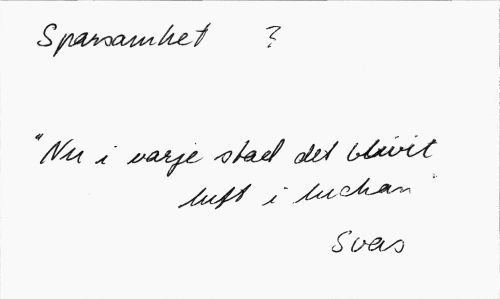 Sparsamhet ?
"Nu i varje stad det blivit
luft i luckan"
Svas